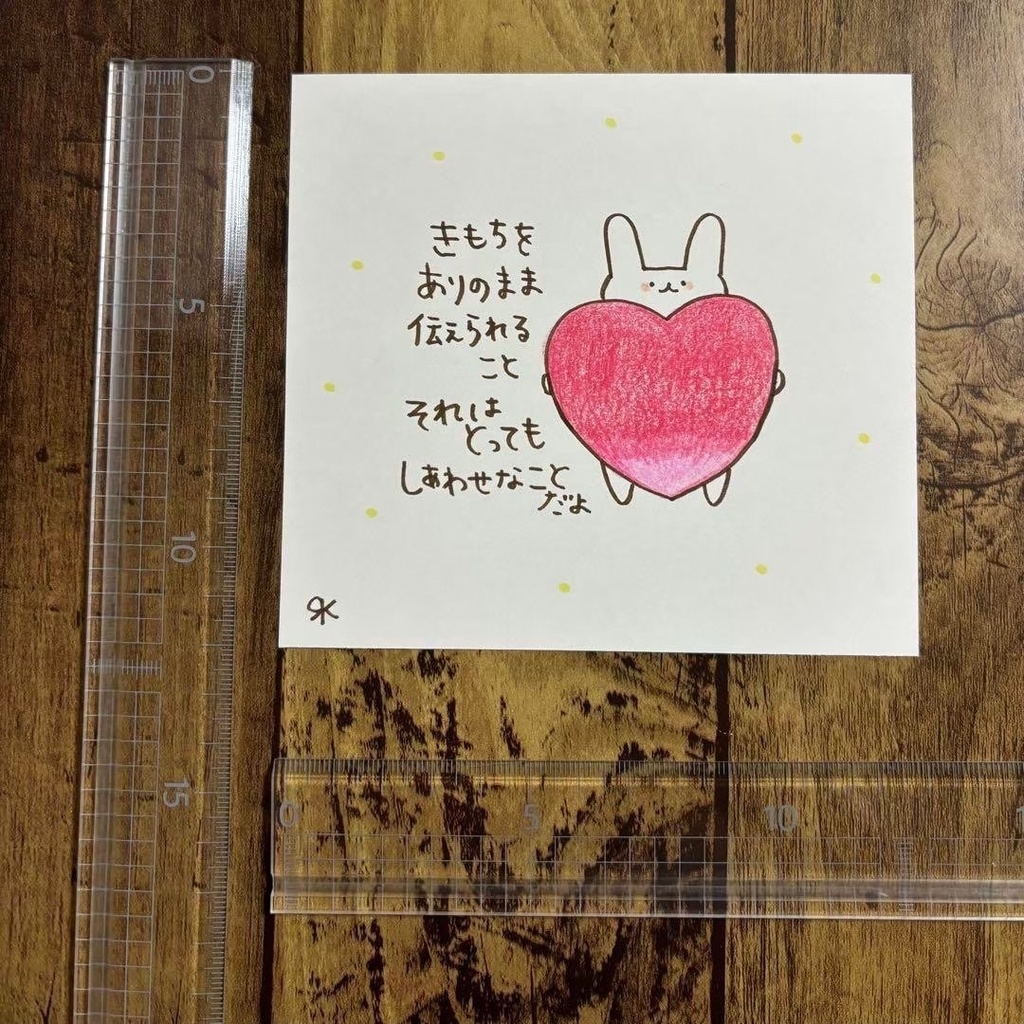 きもちを
ありのまま
伝えられる
こと
それは
とっても
しあわせなこと
だよ
0
5
10
15
0
5
10
1